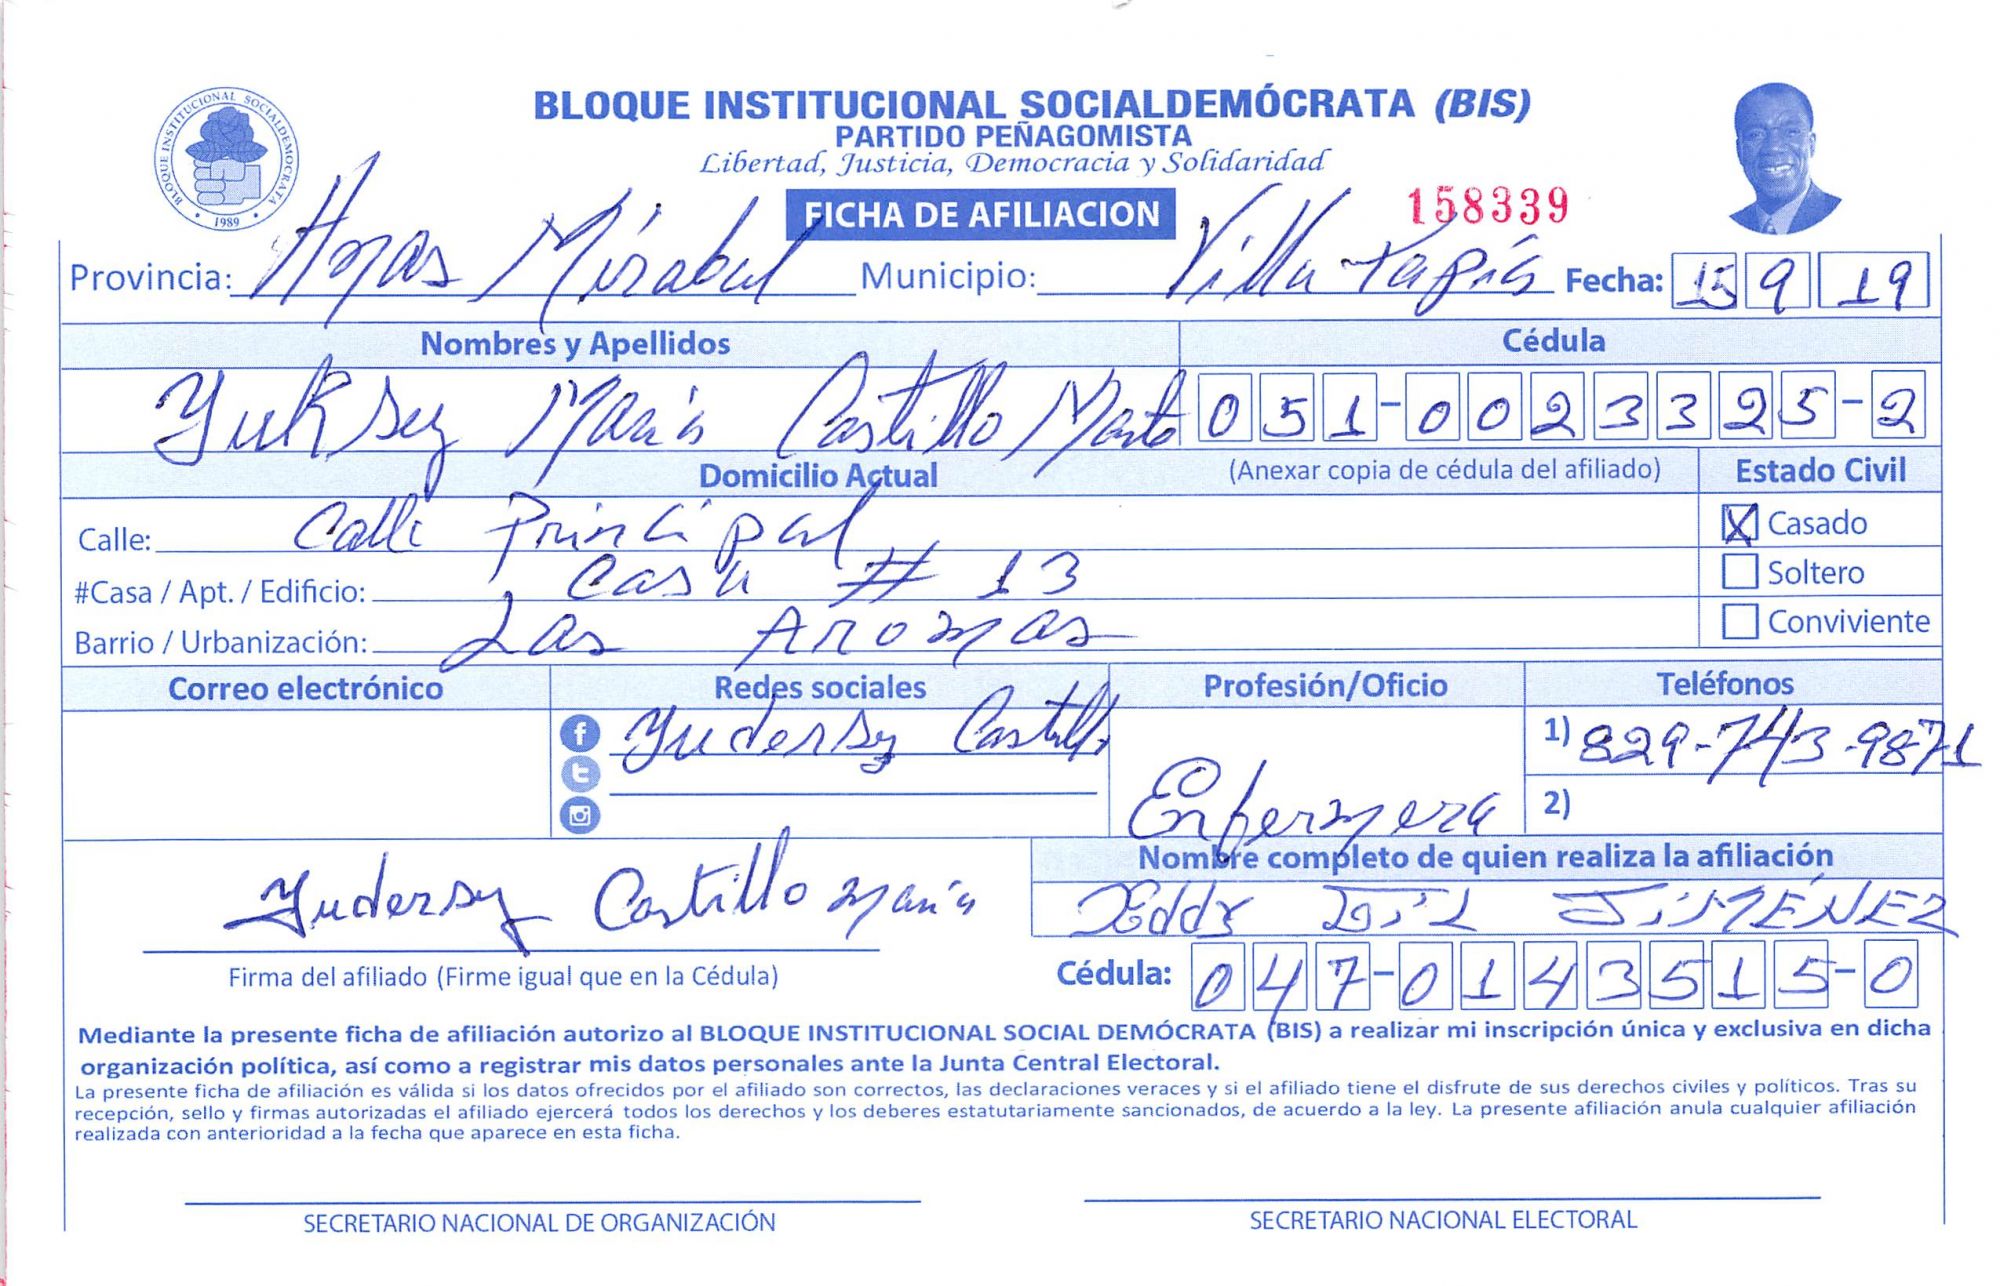 BLOQUE INSTITUCIONAL SOCIALDEMÓCRATA (BIS)
PARTIDO PEÑAGOMISTA
Libertad, Justicia, Democracia y Solidaridad
BLOQUE INSTITUCIONAL SOCIALDEMOCRATA
• 1989 •
FICHA DE AFILIACION
158339
Provincia: Hnas Mirabal Municipio: Villa Tapia Fecha: 15 9 19
Nombres y Apellidos Cédula
María Castillo 051-0023325-2
Domicilio Actual (Anexar copia de cédula del afiliado) Estado Civil
Calle: Calle Principal X Casado
#Casa / Apt. / Edificio: Casa # 13 Soltero
Barrio / Urbanización: Las Aromas Conviviente
Correo electrónico Redes sociales Profesión/Oficio Teléfonos
Yudersy Castillo 1) 829-743-9871
Enfermera 2)
Nombre completo de quien realiza la afiliación
Yudersy Castillo María Eddy Gil JiMÉNEZ
Firma del afiliado (Firme igual que en la Cédula) Cédula: 047-0143515-0
Mediante la presente ficha de afiliación autorizo al BLOQUE INSTITUCIONAL SOCIAL DEMÓCRATA (BIS) a realizar mi inscripción única y exclusiva en dicha
organización política, así como a registrar mis datos personales ante la Junta Central Electoral.
La presente ficha de afiliación es válida si los datos ofrecidos por el afiliado son correctos, las declaraciones veraces y si el afiliado tiene el disfrute de sus derechos civiles y políticos. Tras su
recepción, sello y firmas autorizadas el afiliado ejercerá todos los derechos y los deberes estatutariamente sancionados, de acuerdo a la ley. La presente afiliación anula cualquier afiliación
realizada con anterioridad a la fecha que aparece en esta ficha.
SECRETARIO NACIONAL DE ORGANIZACIÓN SECRETARIO NACIONAL ELECTORAL